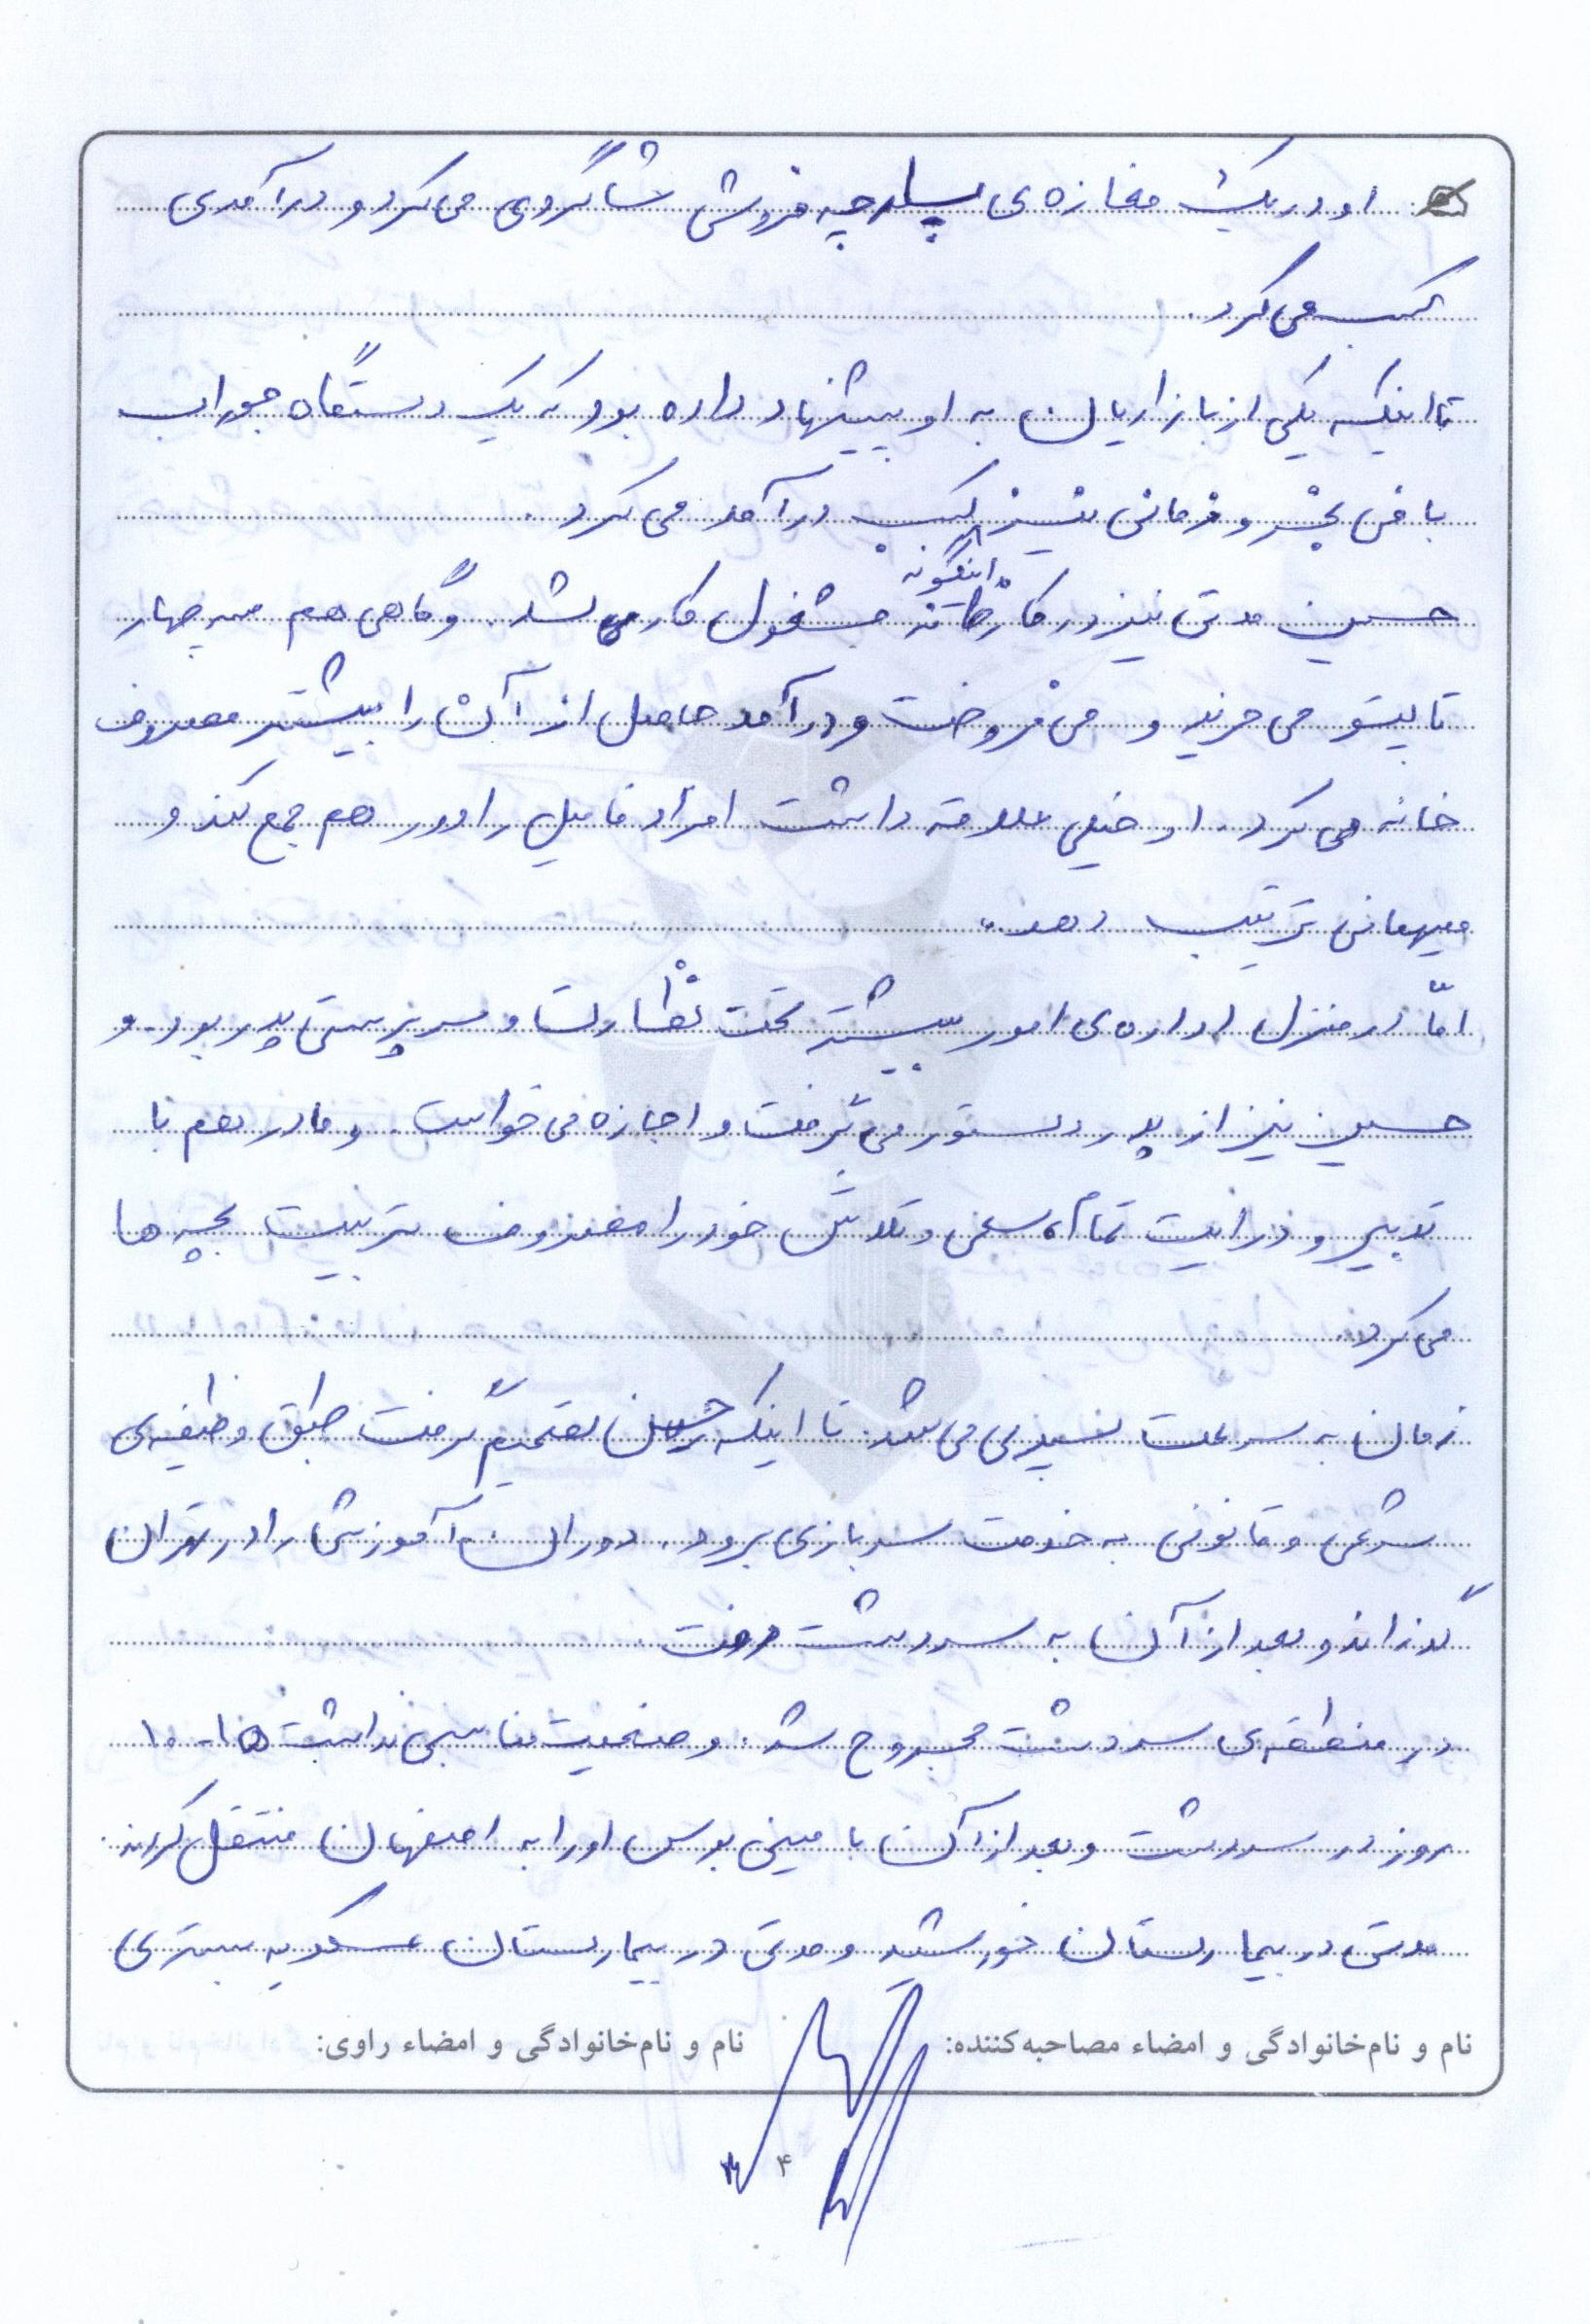 او در یک مغازه‌ی پارچه فروشی شاگردی می‌کرد و درآمدی
کسب می‌کرد.
تا اینکه یکی از بازاریان به او پیشنهاد داده بود که یک دستگاه جوراب
بافی بخر و زمانی نیز کسب درآمد می‌کرد.
حسین مدتی نیز در کارخانه اینگونه مشغول کار می‌شد. و گاهی هم سه چهار
تا پستو می‌خرید و می‌فروخت و درآمد حاصل از آن را بیشتر مصروف
خانه می‌کرد. او خیلی علاقه داشت افراد فامیل را دور هم جمع کند و
میهمانی ترتیب دهد.
امّا در منزل اداره‌ی امور بیشتر تحت نظارت و سرپرستی پدر بود. و
حسین نیز از پدر دستور می‌گرفت و اجازه می‌خواست. و مادر هم با
تدبیر و درایت تمام سعی و تلاش خود را مصروف تربیت بچه‌ها
می‌کرد.
زمان به سرعت سپری می‌شد. تا اینکه حسین تصمیم گرفت طبق وظیفه‌ی
شرعی و قانونی به خدمت سربازی برود. دوران آموزشی را در تهران
گذراند و بعد از آن به سردشت رفت
در منطقه‌ی سردشت مجروح شد. وضعیت مناسبی نداشت ۱۵-۱۰
روز در سردشت و بعد از آن با مینی بوس او را به اصفهان منتقل کردند.
مدتی در بیمارستان خورشید و مدتی در بیمارستان عسکریه بستری
نام و نام‌خانوادگی و امضاء مصاحبه‌کننده: نام و نام‌خانوادگی و امضاء راوی:
۴